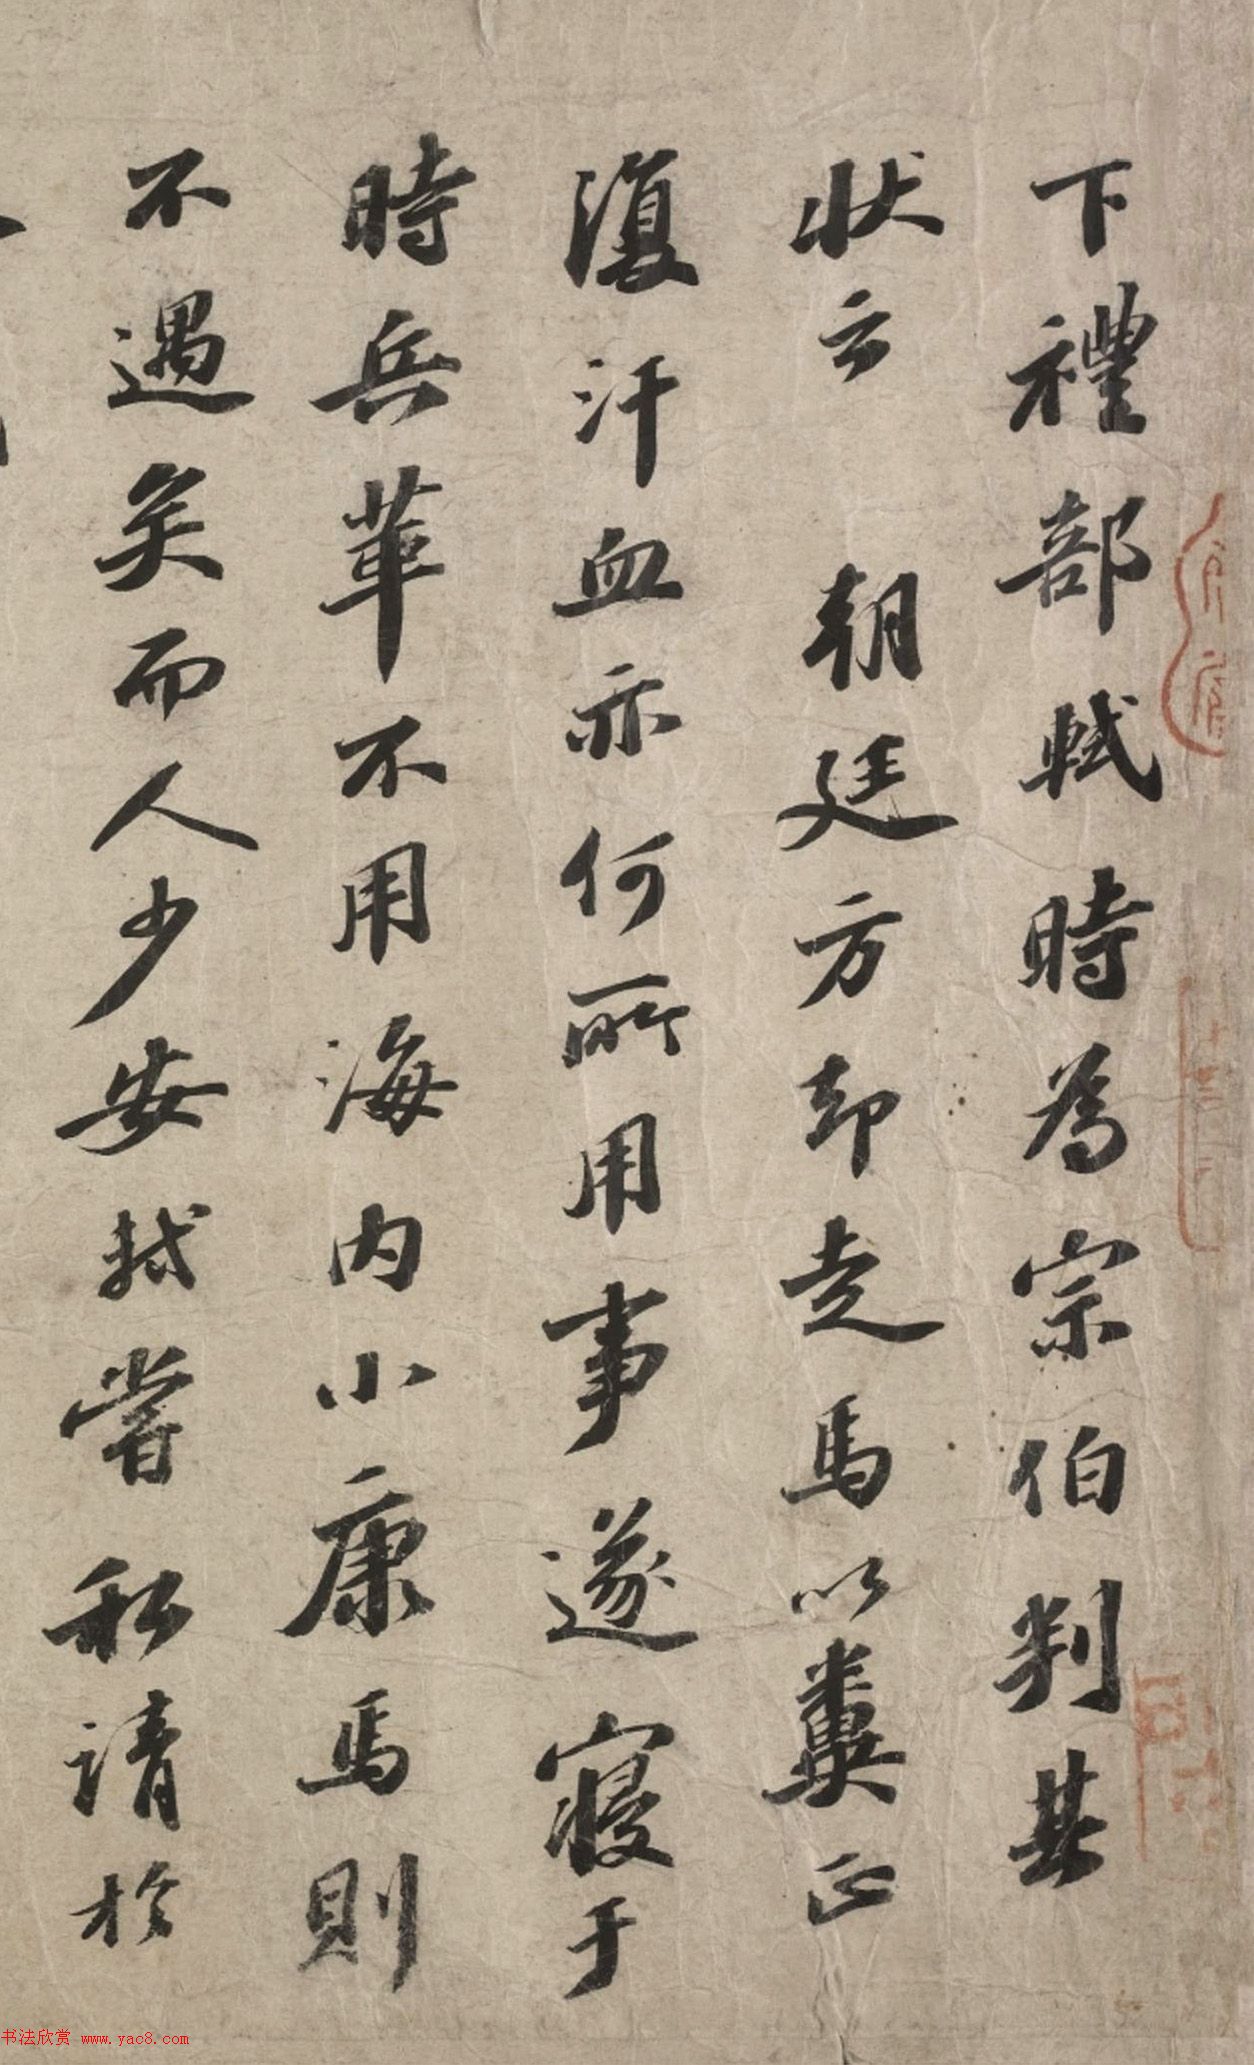 下禮部軾時為宗伯判其
狀云 朝廷方却走馬以糞正
復汗血亦何所用事遂寢于
時兵革不用海內小康馬則
不遇矣而人少安軾嘗私請於
书法欣赏 www.yac8.com